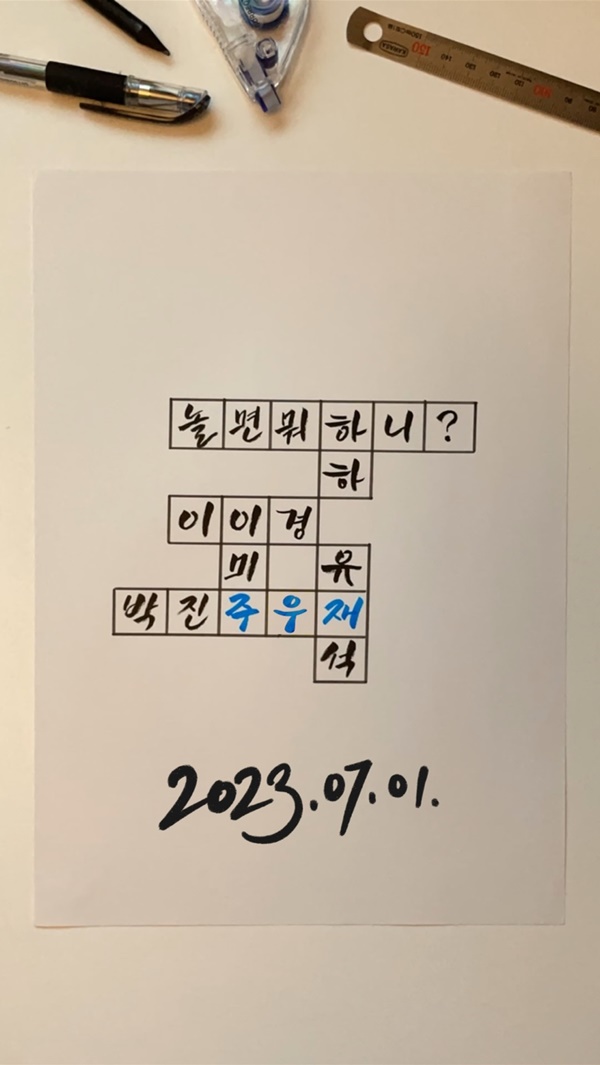 놀면뭐하니?
하
이이경
미 유
박진주우재
석
2023.07.01.